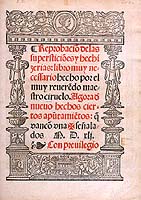 Reprobacio de las
supersticiones y hechi
zerias: libro muy ne
cessario hecho por el
muy reuerēdo mae
stro ciruelo. Agora d̄
nueuo hechos cier
tos apūtamiētos: q̄
van cō vna ✠ señala
dos M. D. xlj.
Con preuilegio